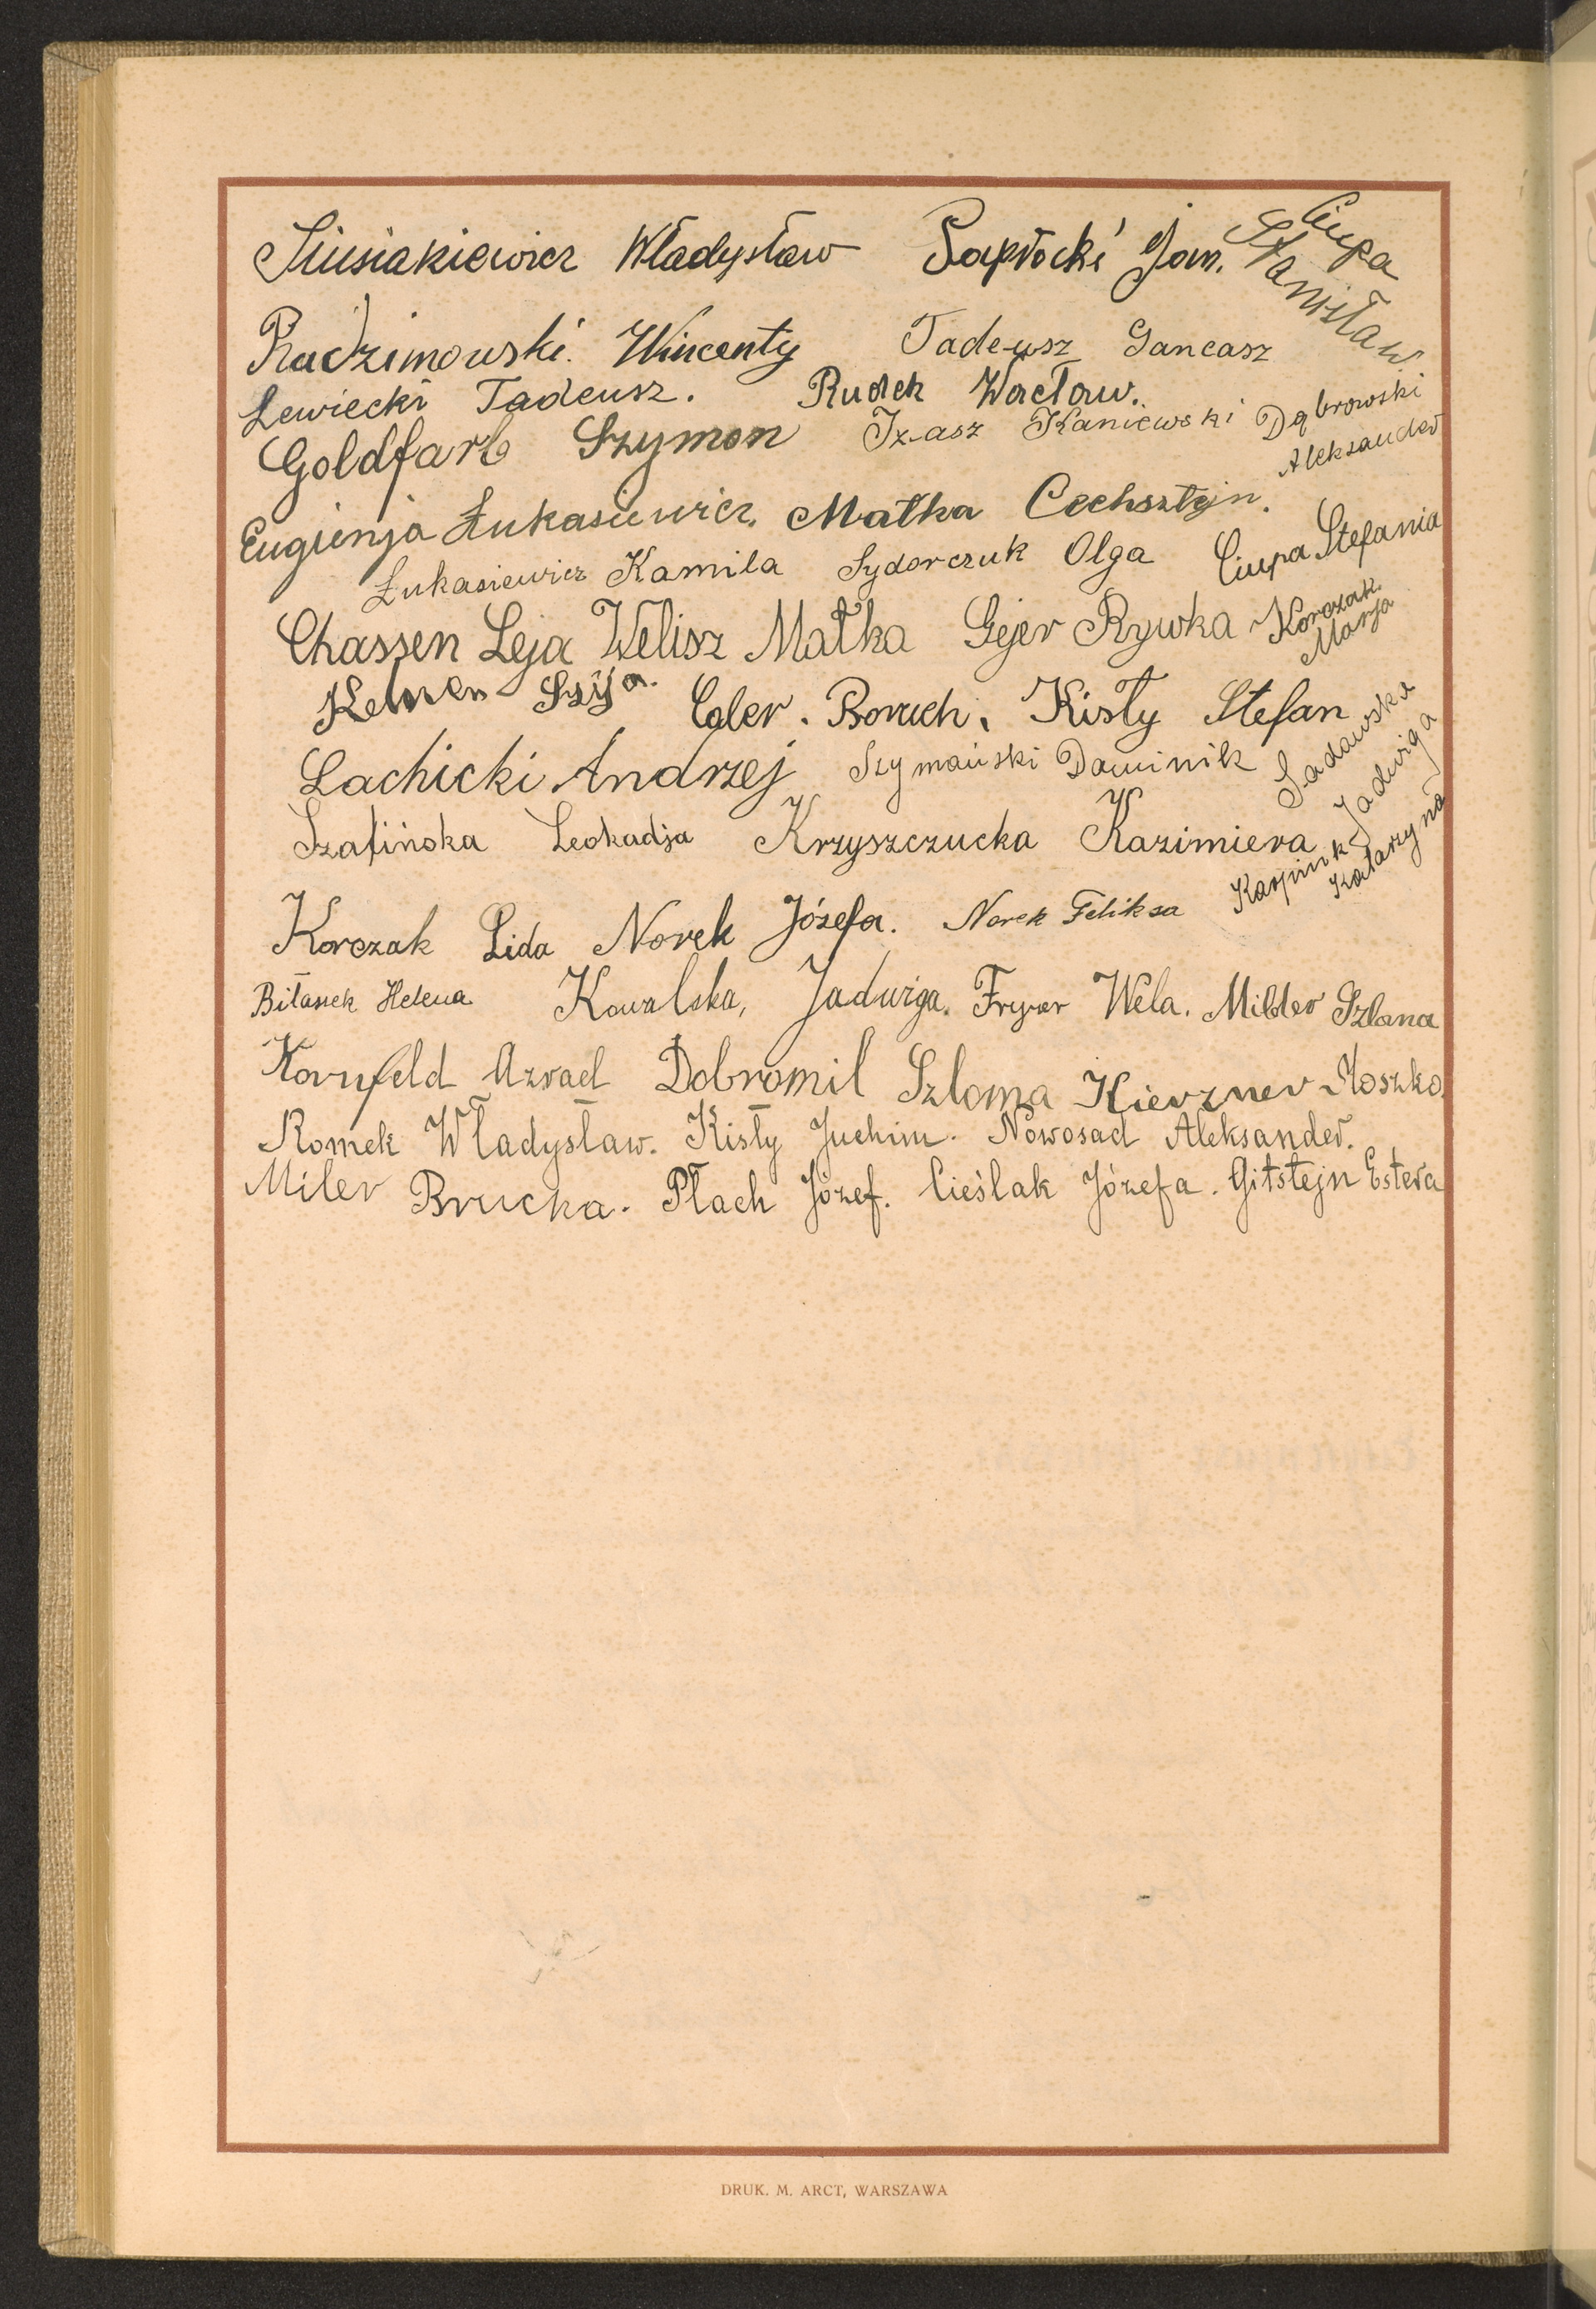 Siusiakiewicz Władysław Sapłocki Jan. Ciupa Stanisław
Radzimowski. Wincenty Tadeusz Gancasz
Lewiecki Tadeusz. Rudek Wacław.
Goldfarb Szymon Izasz Kaniewski Dąbrowski Aleksander
Eugienja Łukasiewicz. Małka Cechsztejn.
Łukasiewicz Kamila Sydorczuk Olga Ciupa Stefania
Chassen Leja Welisz Małka Gejer Rywka Korczak Marja
Szyja. Coler. Boruch. Kisły Stefan
Lachicki Andrzej Szymański Dominik Sadowska Jadwiga
Szafińska Leokadja Krzyszczucka Kazimiera
Korczak Lida Norek Józefa. Norek Feliksa Karpiuk Katarzyna
Biłasek Helena Kowalska, Jadwiga. Fryer Wela. Milder Szlana
Kornfeld Azrael Dobromil Szloma Kierzner Moszko.
Romek Władysław. Kisły Juchim. Nowosad Aleksander.
Miler Brucka. Płach Józef. Cieślak Józefa. Gitstejn Estera
DRUK. M. ARCT, WARSZAWA